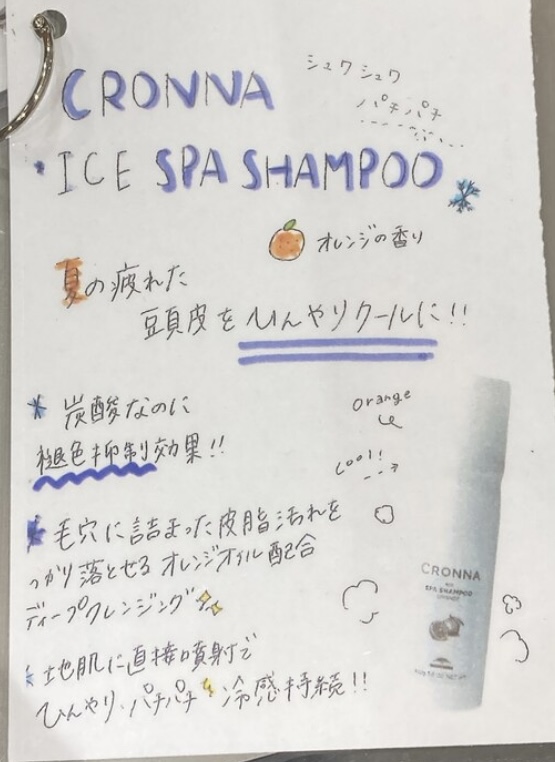 CRONNA
シュワシュワ
パチパチ
・ICE SPA SHAMPOO
オレンジの香り
夏の疲れた
頭皮をひんやりクールに!!
炭酸なのに
褪色抑制効果!!
Orange
Cool!
毛穴に詰まった皮脂汚れを
っかり落とせるオレンジオイル配合
ディープクレンジング
地肌に直接噴射で
ひんやり・パチパチ 冷感持続!!
CRONNA
ICE
SPA SHAMPOO